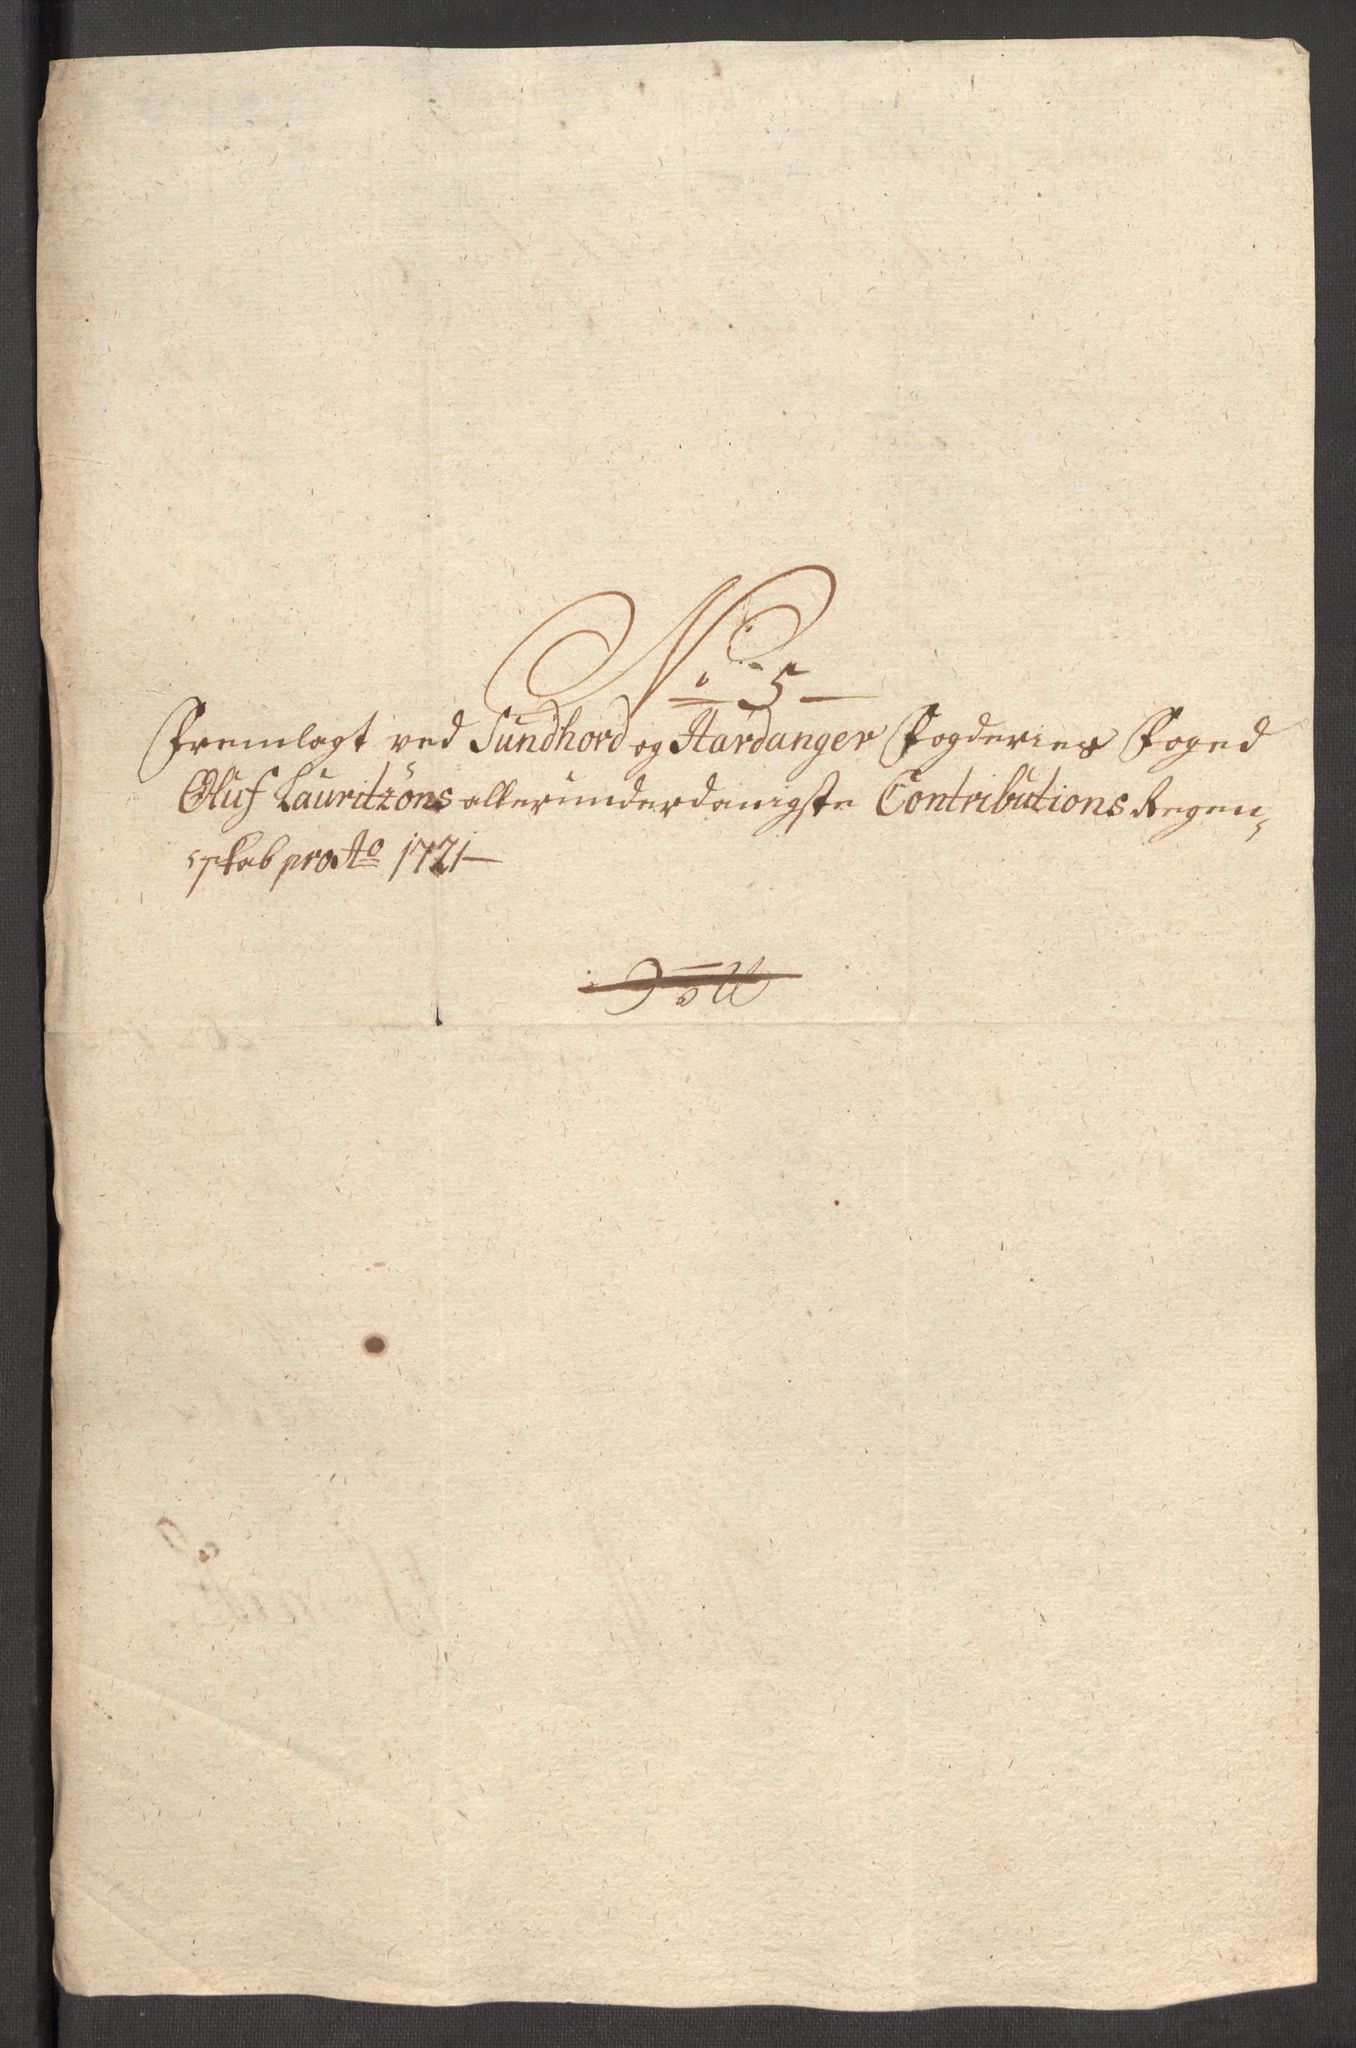 No 5
Fremlagt ved Sundhord og Hardanger Fogderies Foged
Oluf Lauritzöns allerunderdanigste Contributions Regen-
skab pro Ao 1721